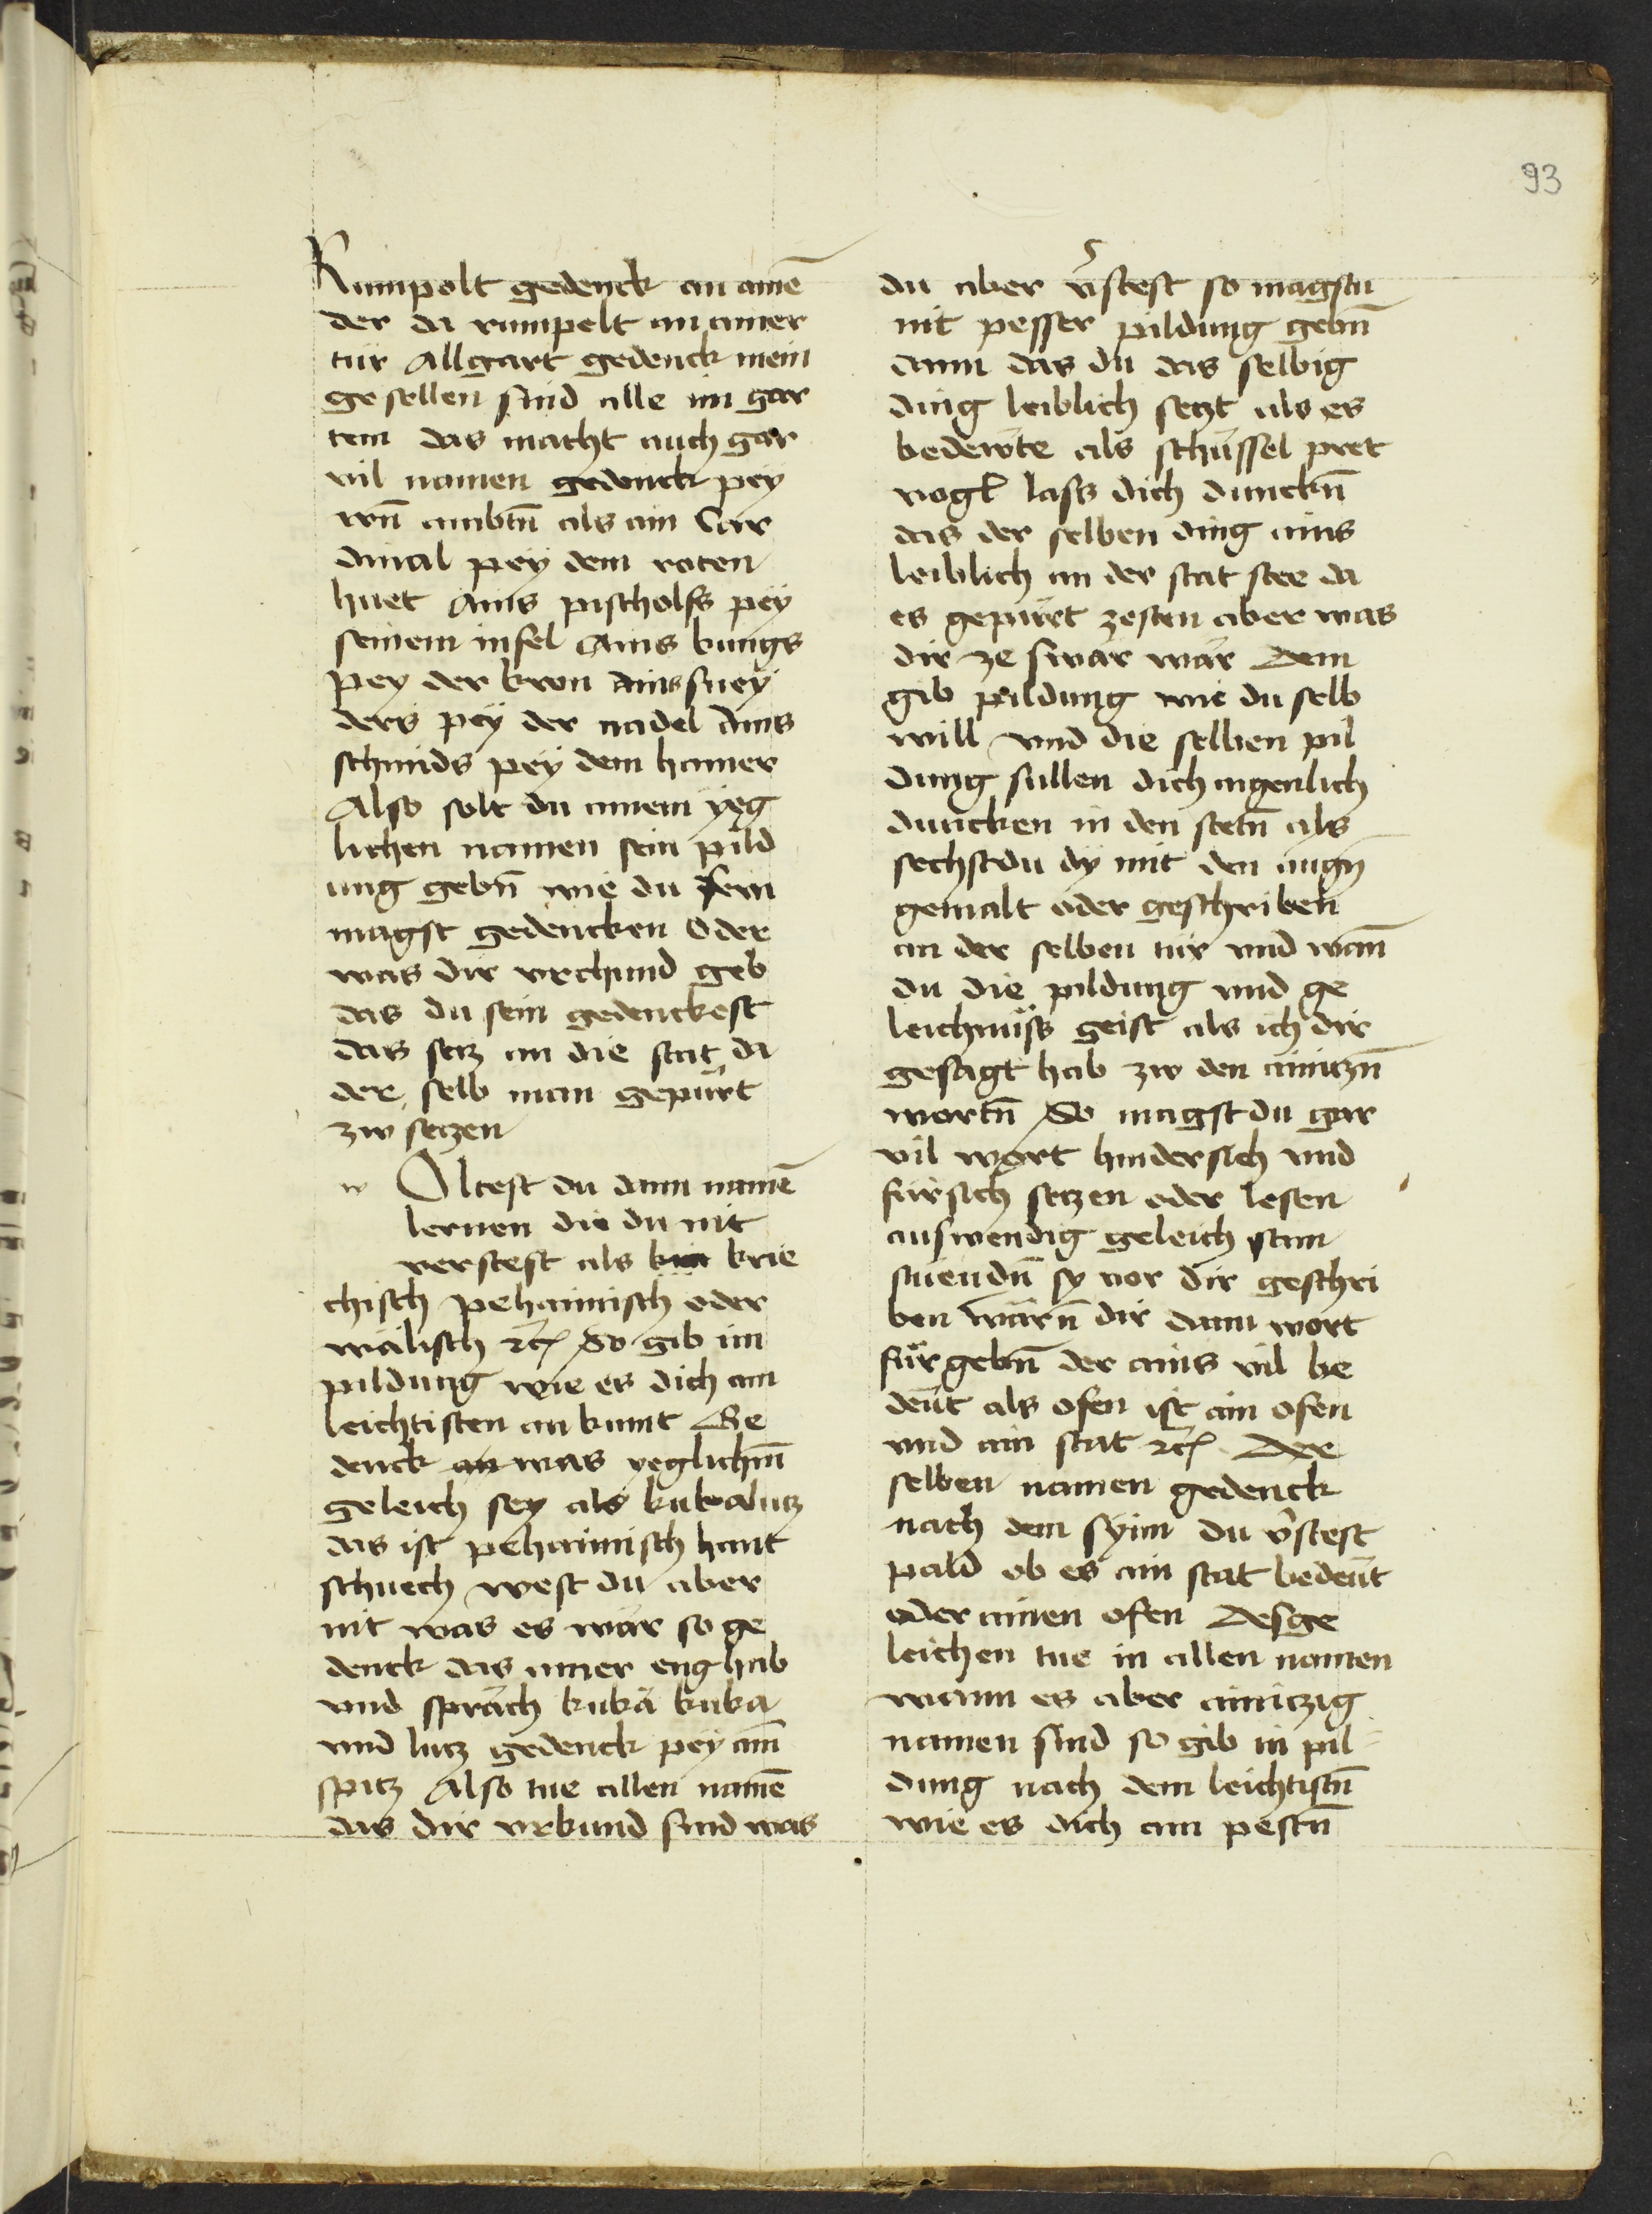 93
Rumpolt gedenck an ainē
der da rumpelt an ainer
tür Allgart gedenck mein
gesellen sind alle im gar
tem das macht auch gar
vil namen gedenck pey
irn̄ ambtn̄ als ain Car
dinal pey dem roten
huet Ains pischolfs pey
seinem infel Ains kunigs
pey der kron Ains sney
ders pey der nadel Ains
schmids pey dem hamer
Also solt du ainem yeg
lichen namen sein pild
ung gebn̄ wie du sein
magst gedencken Oder
was dir vrchund geb
das du sein gedenckest
das setz an die stat da
der selb man gepürt
zw setzen
w Oltest du dann namē
lernen die du nit
verstest als krie
chisch pehaimisch oder
wälisch etc̄ So gib im
pildung wie es dich am
leichtisten an kumt Ge
denck was yeglichm̄
geleich sey als kukalutz
das ist pehaimisch hant
schuech west du aber
nit was es wär so ge
denck das ainer eng hab
vnd spräch kukä kuka
vnd lutz gedenck pey aim̄
spitz Also tue allen namē
das dir vrkund sind was
du aber v̄stest so magstu
nit pesser pildung gebn̄
dann das du das selbig
ding leiblich setzt als es
bedewte als schüssel pret
vogl lass dich dunckn̄
das der selben ding ains
leiblich an der stat stee da
es gepürt zesten aber was
dir ze swär wär Dem
gib pildung wie du selb
will vnd die selben pil
dung sullen dich aigenlich
duncken in den stetn̄ als
sechstdu dy mit den augn̄
gemalt oder geschriben
an der selben tür vnd wan̄
du die pildung vnd ge
leichnüss geist als ich dir
gesagt hab zw den ainitzn̄
wortn̄ So magst du gar
vil wort hindersich vnd
fürsich setzen oder lesen
auswendig geleich sam
stüendn̄ sy vor dir geschri
ben wärn̄ dir dann wort
für gebn̄ der ains vil be
deut als ofen ist ain ofen
vnd ain stat etc̄ Der
selben namen gedenck
nach dem synn du v̄stest
pald ob es ain stat bedeut
oder ainen ofen Desge
leichen tue in allen namen
wann es aber ainitzig
namen sind so gib in pil
dung nach dem leichtistn̄
wie es dich am pestn̄